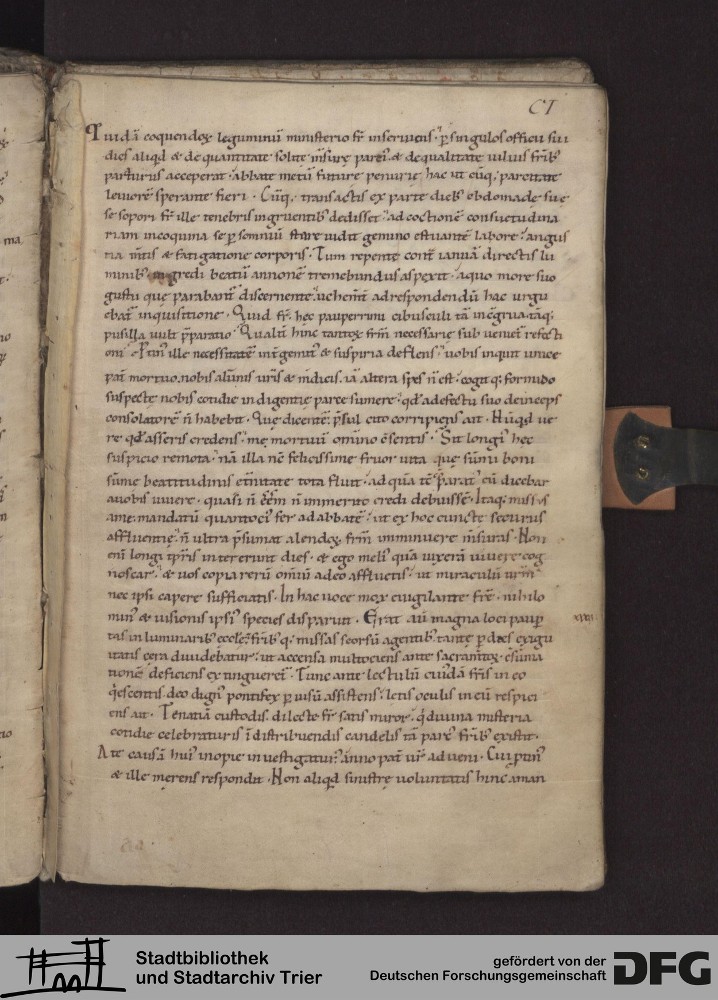 CI
Quidā coquendoꝝ leguminū ministerio fr̄ inserviens. ꝑ singulos officii sui
dies aliqd & de quantitate solite m̄sure
& de qualitate
acceperat. abbate metū future penurie hac ut cūq; parcitate
leviorē sperante fieri. Cūq; transactis ex parte dieb; ebdomade sue
se sopori fr̄ ille tenebris ingruentib; dedisset. ad coctionē consuetudina
riam in coquina se ꝑ somniū stare vidit gemino estuantē labore. angus
tia m̄tis & fatigatione corporis. Tum repente
ianuā directis lu
minib; ingredi beatū annonē tremebundus aspexit. a quo more suo
gustu que
discernente
ad respondendū hac urgu
inquisitione. Quid fr̄ hec pauperrimi cibusculi tā
pusilla vult p̄paratio. Qualit̄ hinc tantoꝝ frm̄ necessarie subveniet refecti
oni.
ille necessitatē
& suspiria deflens. vobis inquit unice
pat̄ mortuo. nobis alūnis vr̄is & mdicis. iā altera spes n̄ est. cogit q; formido
suspecte nobis cotidie indigentie parce sumere. qd a defectu suo deinceps
consolatorē n̄ habebit. Que dicentē p̄sul cito corripiens ait. Nūqd ve
re qd asseris credens. me mortuū omino
Sit longi' hec
suspicio remota. nā illa nē felicissime fruor vita que sūmi boni
sūme beatitudinis et̄nitate tota fluit. ad quā
cū dicebar
a vobis vivere. quasi n̄
n̄ inmerito credi debuissē. Itaq; missus
a me. mandatū quantoci' fer ad abbatē. ut ex hoc cuncte securus
affluentie. n̄ ultra p̄sumat alendoꝝ frm̄ imminuere m̄suras. Non
eni longi tp̄ris intererunt dies. & ego meli' quā vixerā vivere cog
noscar. & vos copia rerū omiū adeo affluetis. ut miraculū
nec ipsi capere sufficiatis. In hac voce mox evigilante fr̄e. nihilo
min' & visionis ipsi' species disparuit. Erat
magna loci paup
tas in luminarib; eccle. frib; q; missas seorsū agentib; tante ꝑ
exigu
itatis cera dividebatur. ut accensa multociens ante
tionē deficiens extingueret̄. Tunc ante lectulū cuidā fr̄is in eo
q̇escentis deo dign' pontifex ꝑ visū assistens. letis oculis in eū respici
ens ait. Tenatiā custodis dilecte fr̄ satis miror. q̇ divina misteria
cotidie celebraturis ī distribuendis candelis tā
frib; existit.
A te causā hui' inopie investigatur'. anno pat̄ vr̄ adveni. Cui
& ille merens respondit. Non aliqd sinistre voluntatis hinc aman
Stadtbibliothek
und Stadtarchiv Trier
gefördert von der
Deutschen Forschungsgemeinschaft
DFG